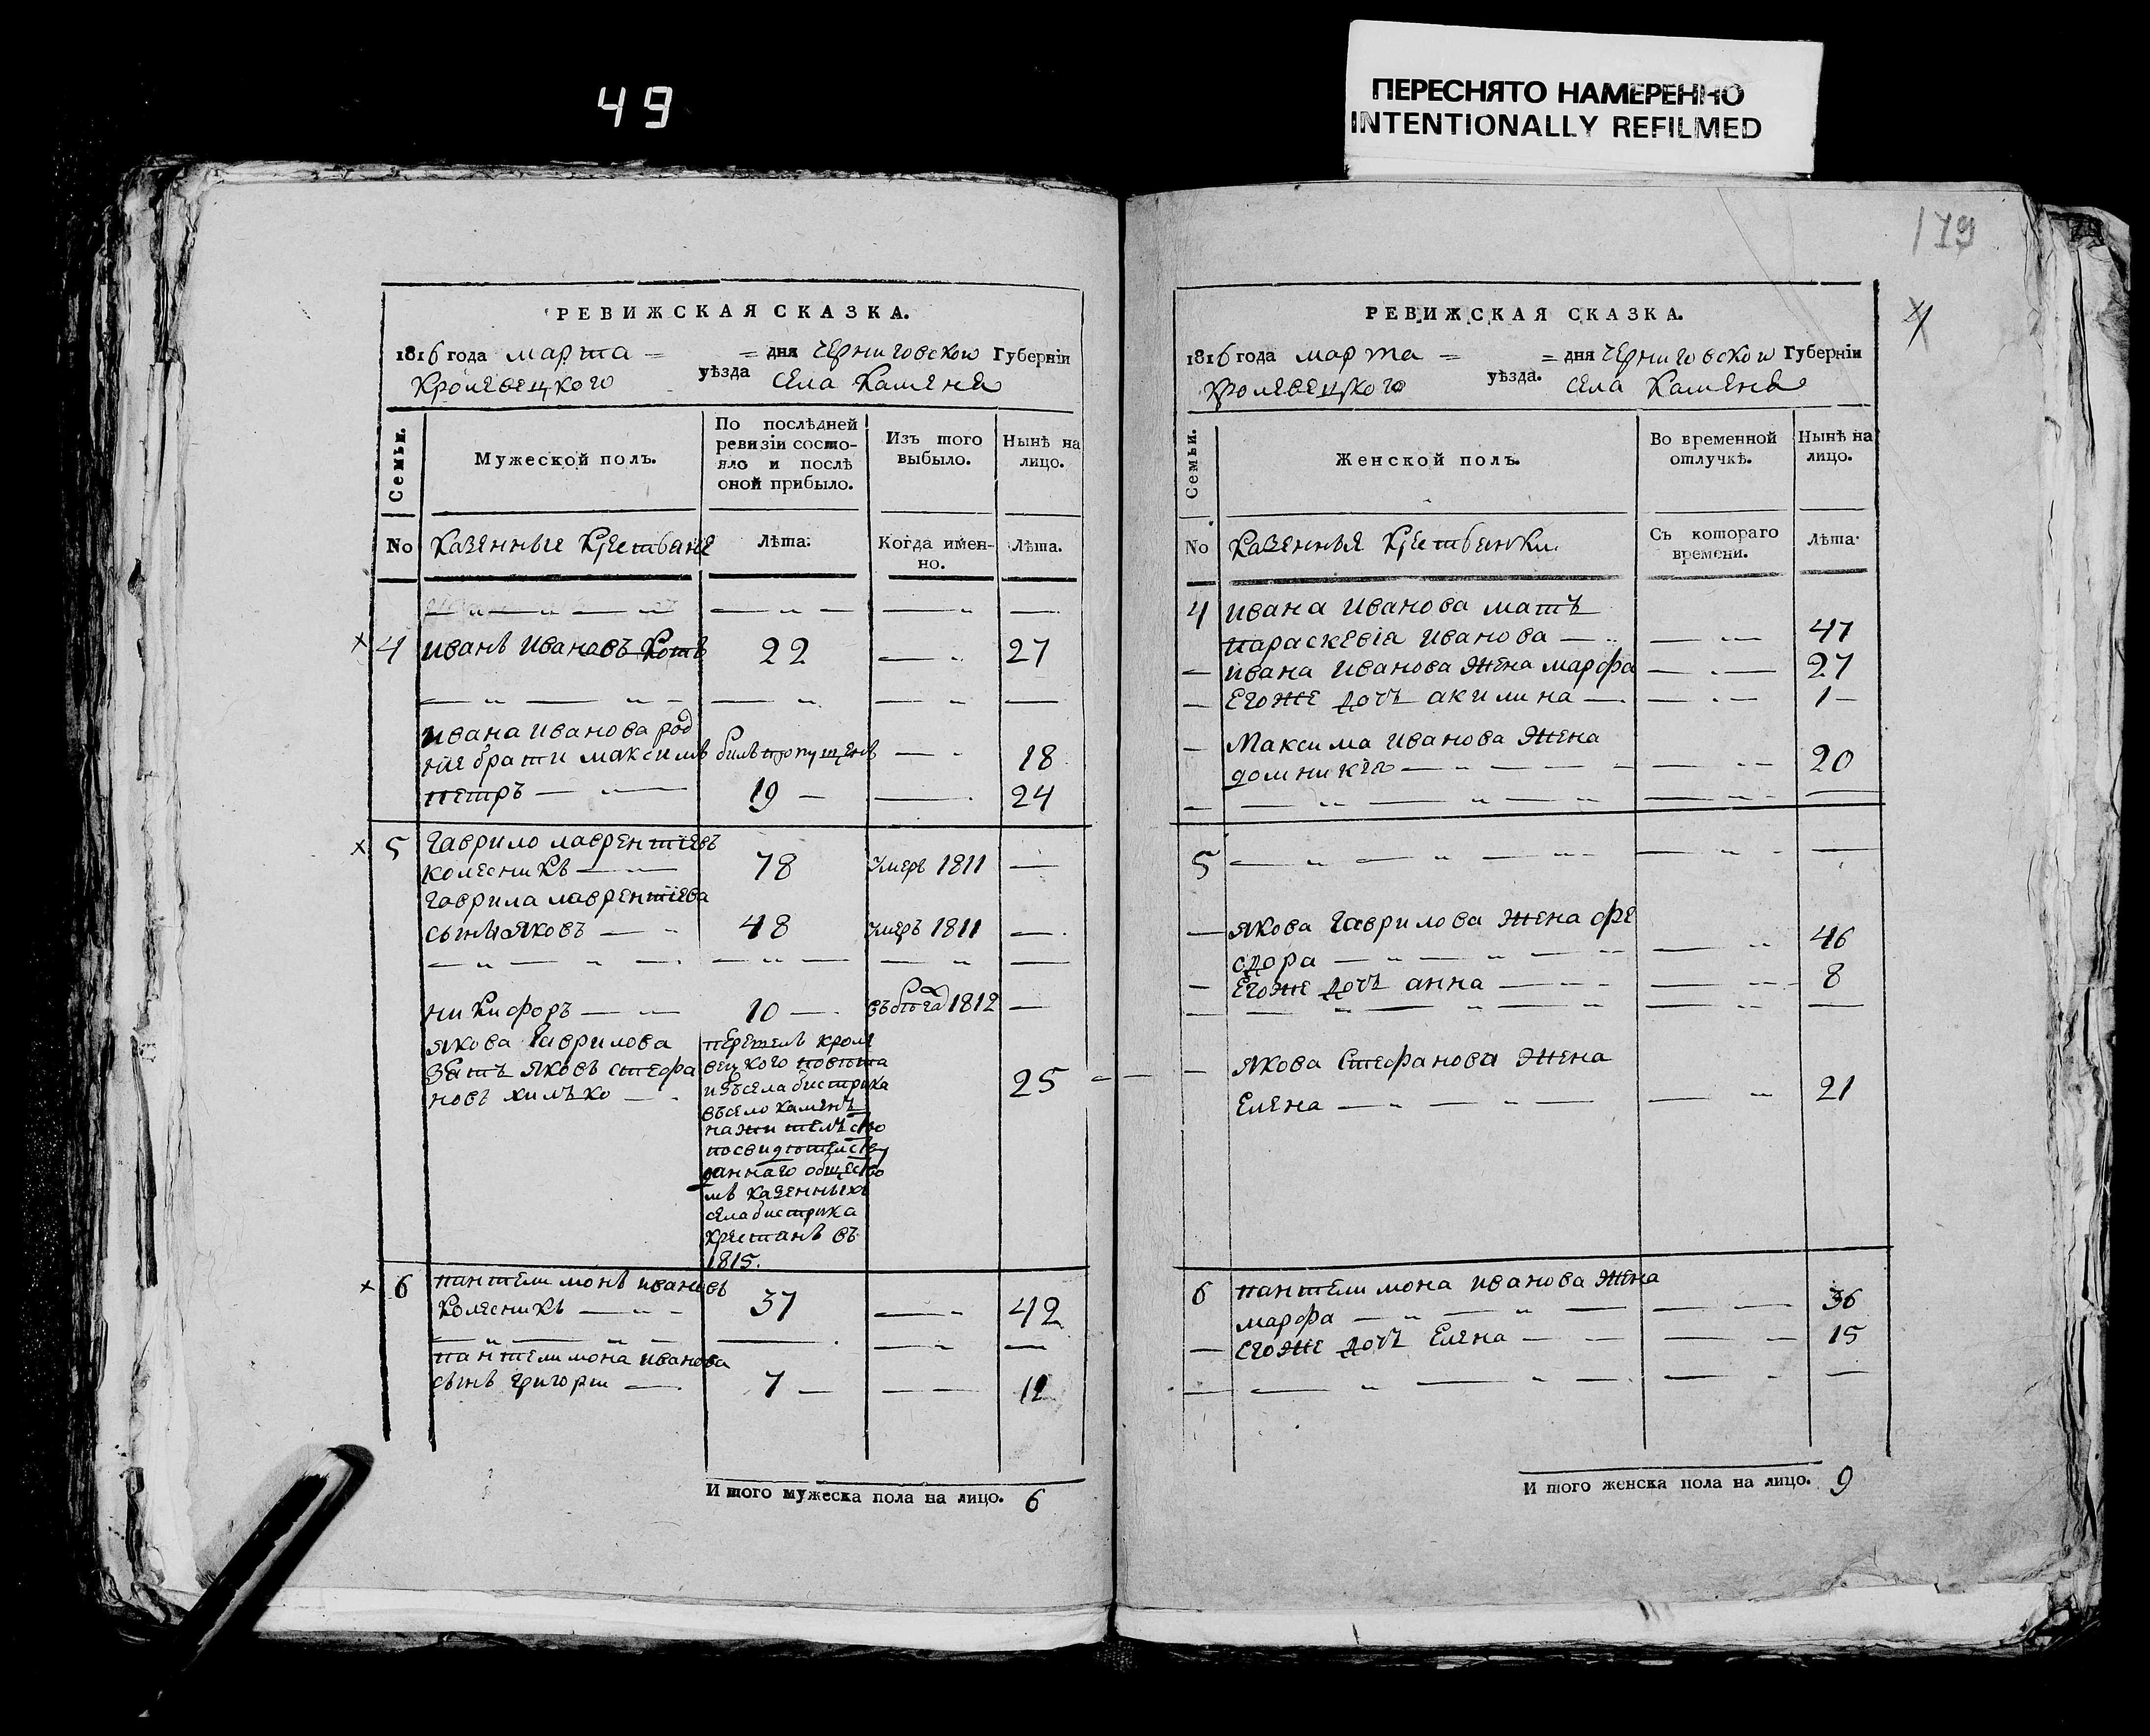 49
ПЕРЕСНЯТО НАМЕРЕННО
INTENTIONALLY REFILMED
179
РЕВИЖСКАЯ СКАЗКА.
1816 года марта = = дня Черниговской Губерніи
Кролевецкого уѣзда села Каменя
Семьи.
Мужеской полъ.
По послѣдней ревизіи состояло и послѣ оной прибыло.
Изъ того выбыло.
Нынѣ на лицо.
No Казенные Крестьяне Лѣта. Когда именно. Лѣта.
4 иванъ Ивановъ Котъ 22 — 27
ивана иванова род
ніе брати максимъ билъ пропущенъ — 18
петръ — 19 — 24
5 Гаврило лаврентіевъ
колесникъ — 78 умеръ 1811 —
Гаврила лаврентіева
сынъ яковъ — 48 умеръ 1811 —
никифоръ — 10 — въ бѣга 1812 —
якова Гаврилова
зять яковъ стефа
новъ хилько — 25
перешелъ кроле
вецкого повѣта
изъ села бистрика
въ село камень
на жителство
по свидѣтелству
данного общество
мъ казенныхъ
села бистрика
крестянъ въ
1815.
6 пантелимонъ ивановъ
Колесникъ — 37 — 42
пантелимона иванова
сынъ григорій — 7 — 12
И того мужеска пола на лицо. 6
РЕВИЖСКАЯ СКАЗКА.
4
1816 года марта = = дня Черниговской Губерніи
Кролевецкого уѣзда. села Каменя
Семьи.
Женской полъ.
Во временной отлучкѣ.
Нынѣ на лицо.
No Казенныя Крестьянки. Съ котораго времени. Лѣта.
4 ивана иванова мать
параскевія иванова — 47
— ивана иванова жена марфа — 27
— Егоже дочь акилина — 1 —
— Максима иванова жена
домникія — 20
5
— якова Гаврилова жена фе
одора — 46
— Егоже дочь анна — 8
— якова Стефанова жена
Елена — 21
6 пантелимона иванова жена
марфа — 36
— Егоже дочь Елена — 15
И того женска пола на лицо. 9